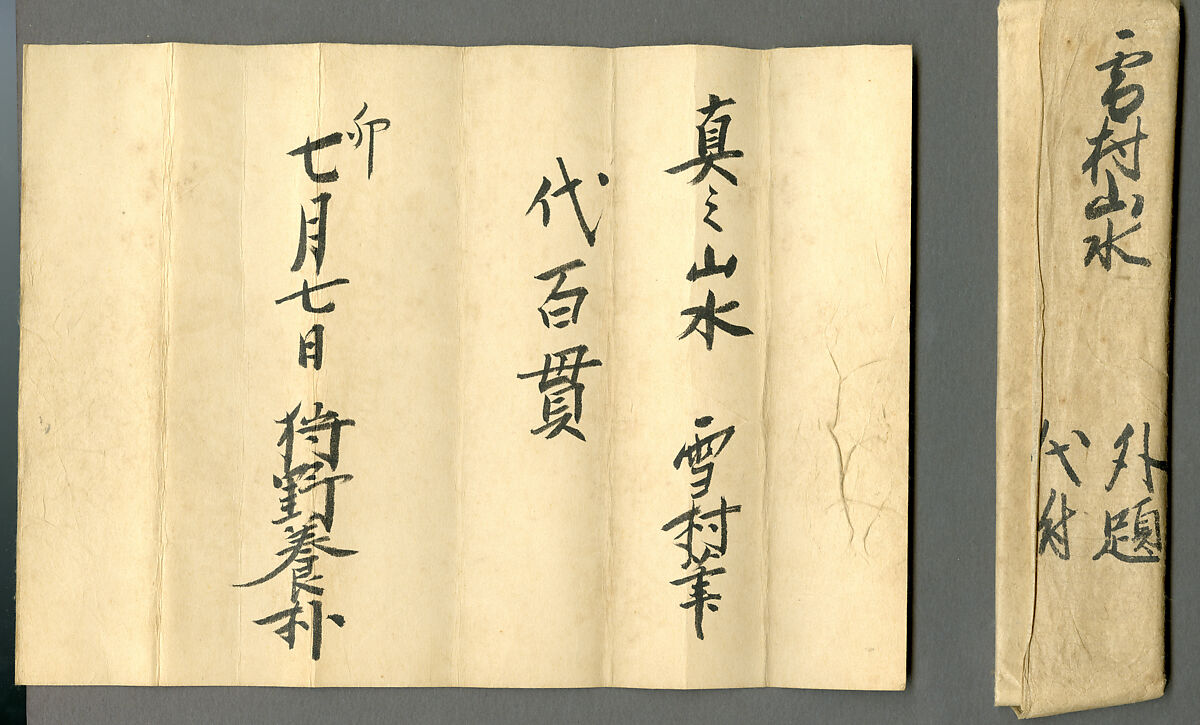 雪村山水
外題
代付
真之山水 雪村筆
代百貫
卯
七月七日 狩野養朴